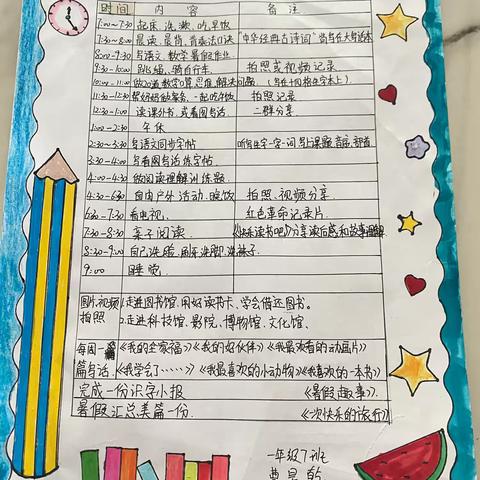 时间 内容 备注
7:00~7:30 起床、洗漱、吃早饭
7:30~8:00 晨读、晨背、背乘法口诀 "中华经典古诗词"
8:00-9:30 写语文、数学暑假作业
9:30-10:00 跳绳、骑自行车 拍照或视频记录
10:00-11:00 做20道数学口算、思维、解决问题
11:30-12:30 一起吃午饭 拍照记录
12:00-1:00 读课外书,或看图写话 二群分享
1:00~2:30 午休
2:30~3:30 写语文同步字帖
3:30~4:00 写看图写话练字帖
4:00-4:30 做阅读理解训练题
4:30-6:30 自由户外活动、晚饭 拍照、视频分享
6:30-7:30 看电视、 红色革命记录片
7:30-8:30 亲子阅读 《快乐读书吧》分享读后感和故事
8:30-9:00 自己洗脸、刷牙、洗脚、洗袜子
9:00 睡觉
图片、视频 1.走进图书馆、用好读书卡、学会借还图书。
拍照 2.走进科技馆、影院、博物馆、文化馆、
每周一 《我的全家福》《我的好伙伴》《我最喜欢看的动画片》
篇写话 《我学会了……》《我最喜欢的小动物》《我喜欢的一本书》
完成一份识字小报 《暑假趣事》
暑假汇总美篇一份. 《一次快乐的旅行》
一年级7班
曹昊乾